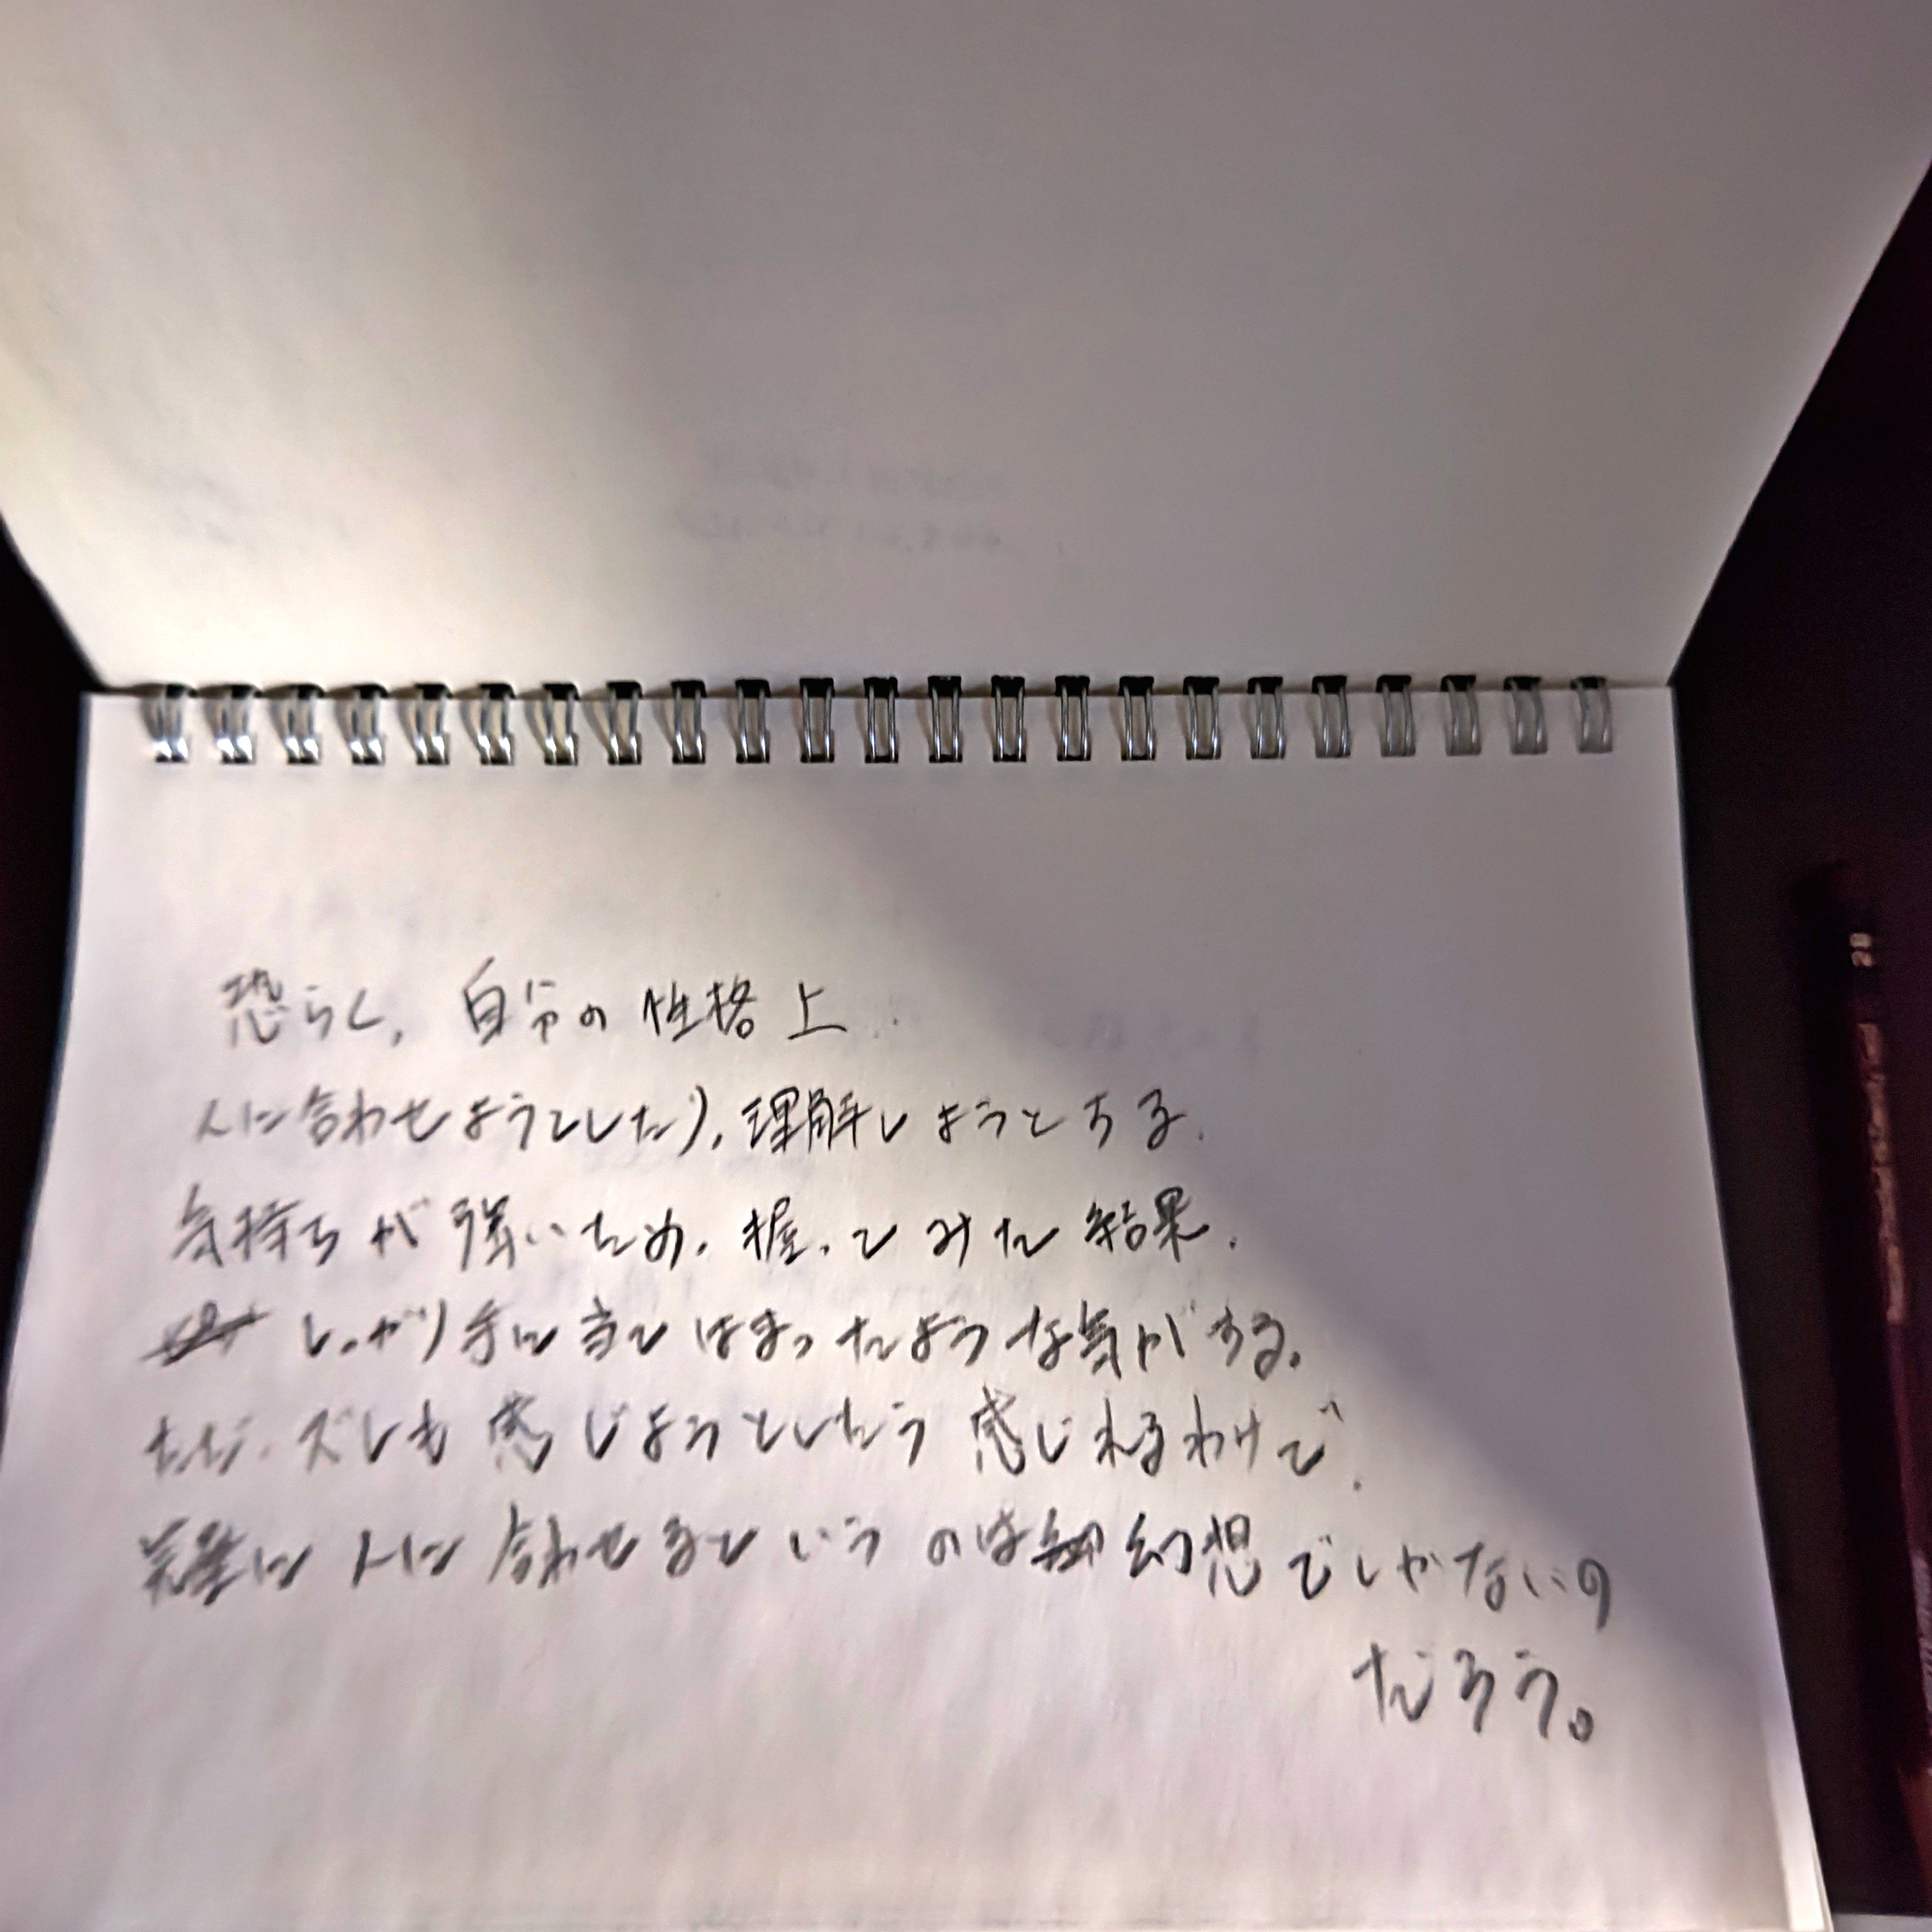 恐らく、自分の性格上、
人に合わせようとしたり、理解しようとする
気持ちが強いため、握ってみた結果、
しっかり手に当てはまったような気がする。
ただ、ズレも感じようとしたら感じれるわけで、
に人に合わせるというのは幻想でしかないの
だろう。
2B